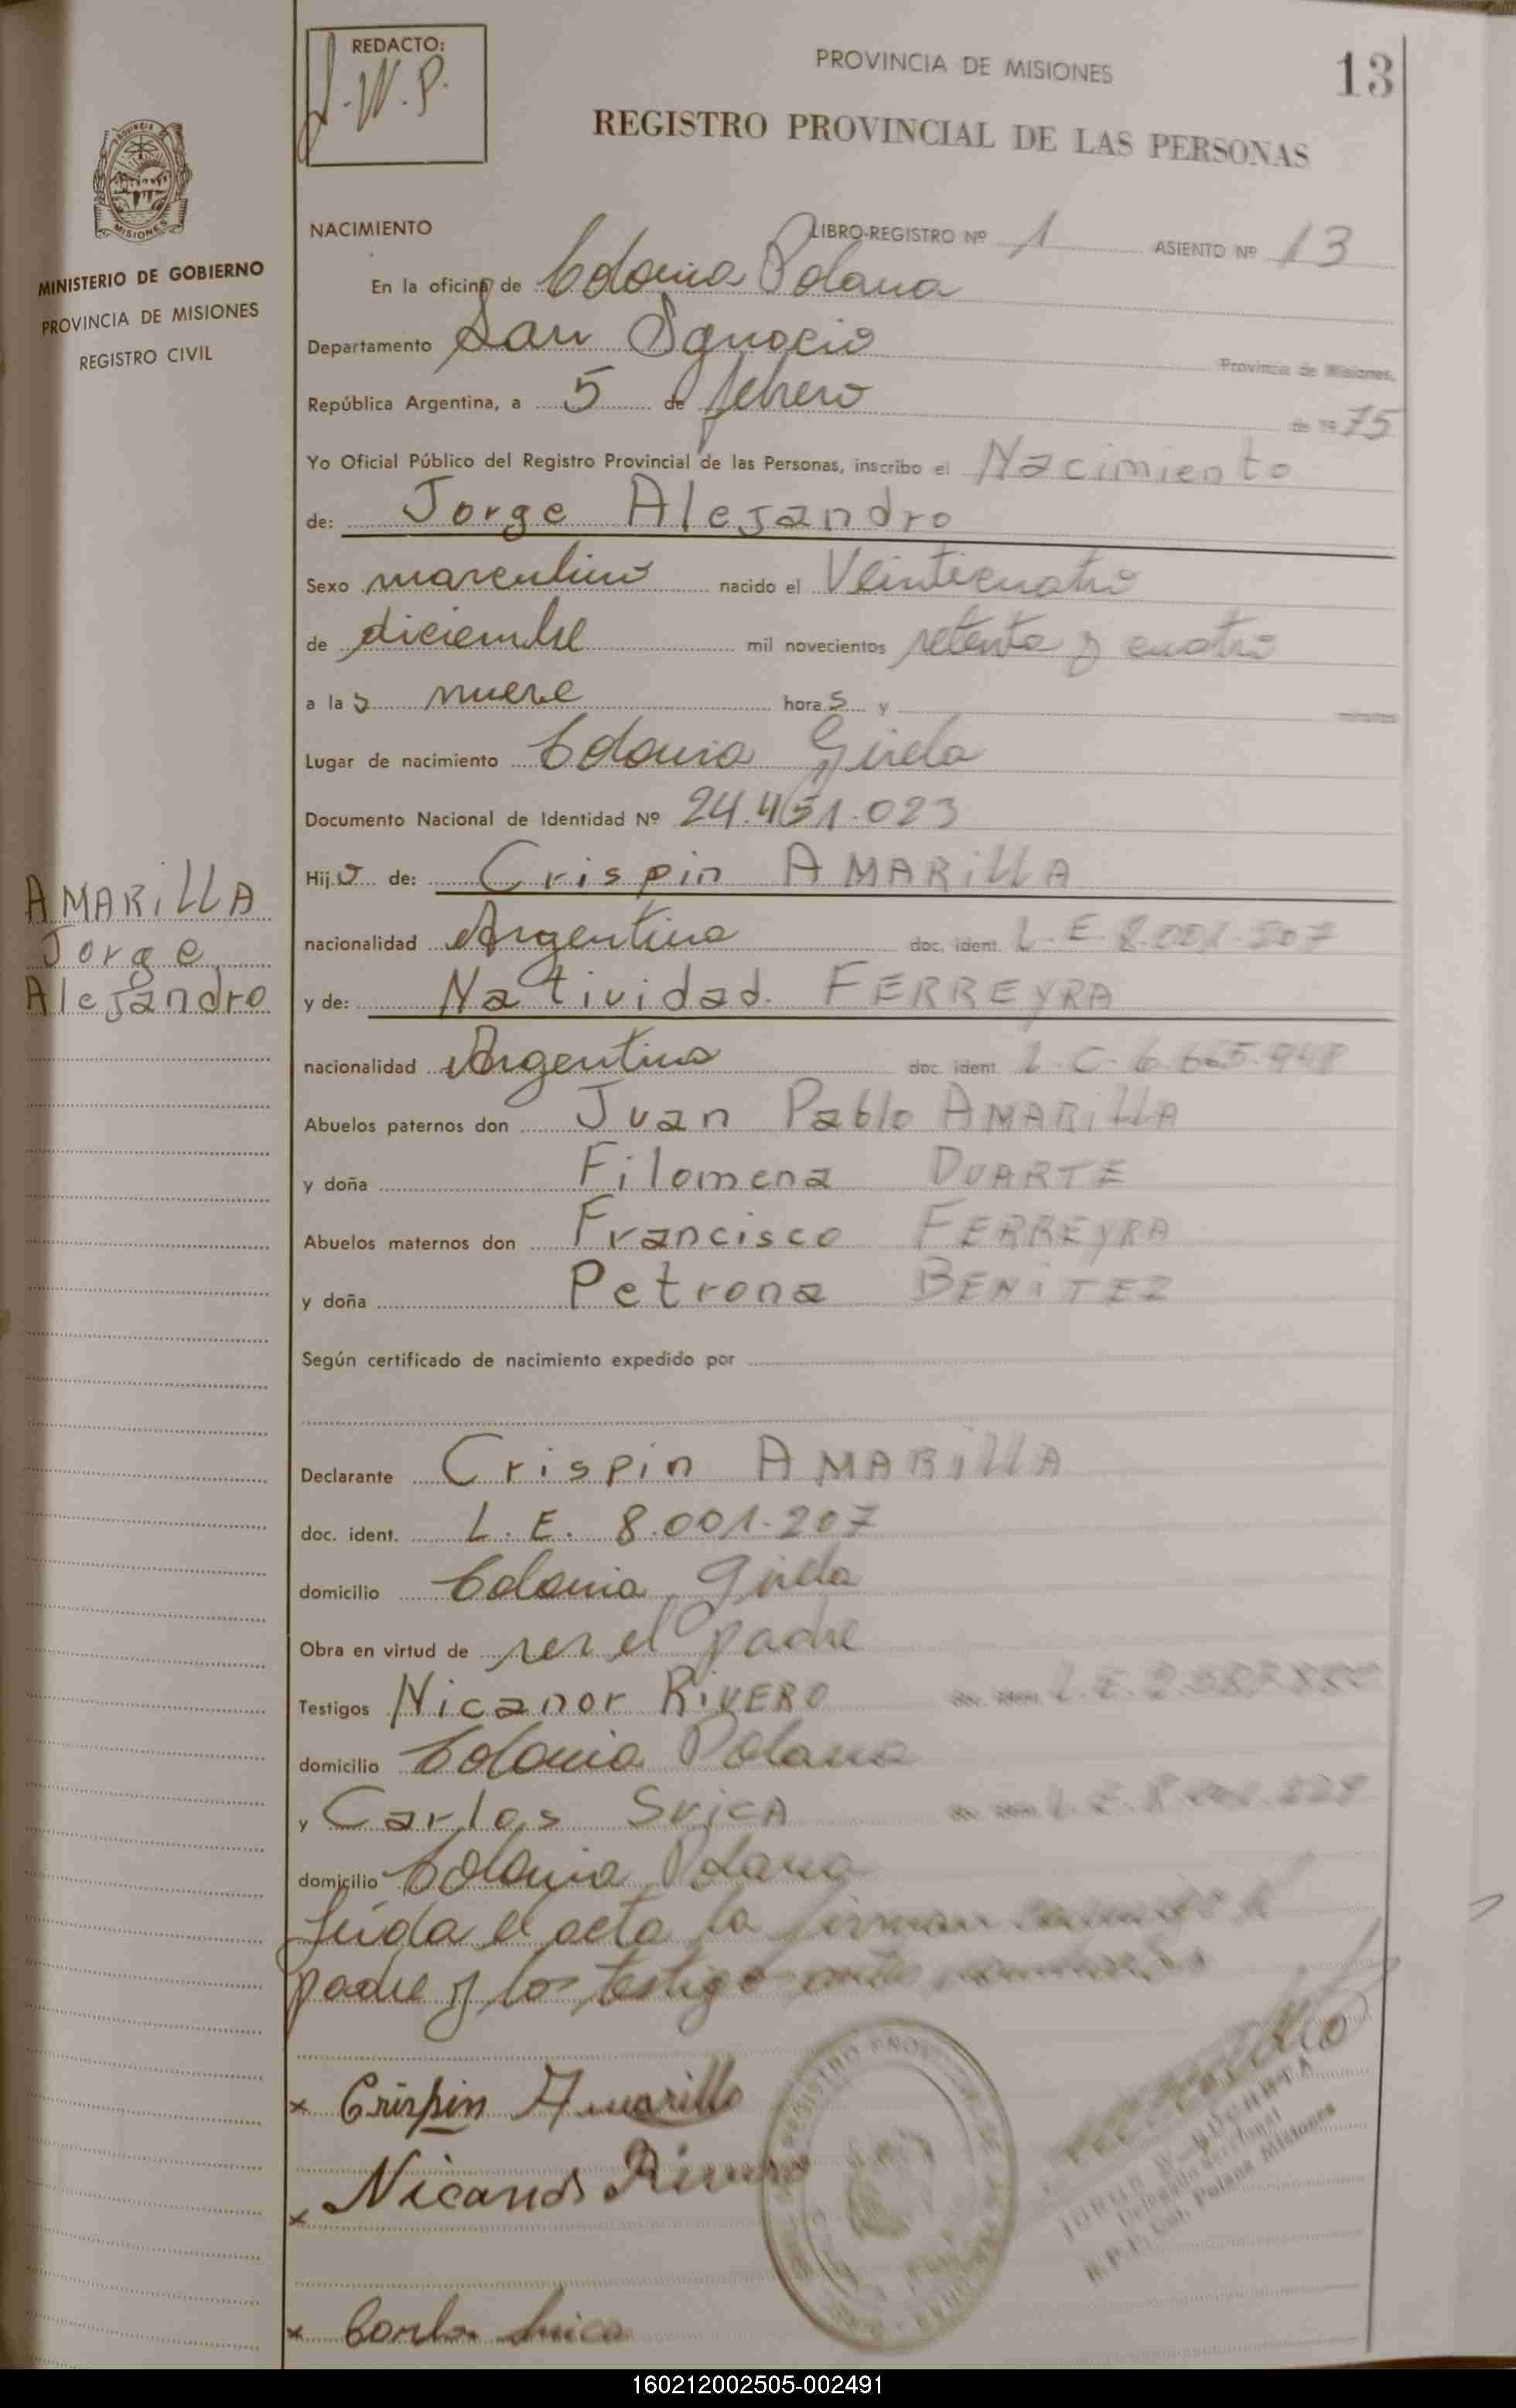 REDACTO:
J.W.P.
PROVINCIA DE MISIONES
13
REGISTRO PROVINCIAL DE LAS PERSONAS
MISIONES
MINISTERIO DE GOBIERNO
PROVINCIA DE MISIONES
REGISTRO CIVIL
NACIMIENTO
LIBRO-REGISTRO Nº 1 ASIENTO Nº 13
En la oficina de Colonia Polana
Departamento San Ignacio Provincia de Misiones,
República Argentina, a 5 de febrero de 1975
Yo Oficial Público del Registro Provincial de las Personas, inscribo el Nacimiento
de: Jorge Alejandro
Sexo masculino nacido el Veinticuatro
de diciembre mil novecientos setenta y cuatro
a las nueve horas y minutos
Lugar de nacimiento Colonia Gisela
Documento Nacional de Identidad Nº 24.451.023
Hijo de: Crispin AMARILLA
AMARILLA
Jorge
Alejandro
nacionalidad Argentina doc. ident. L.E.
y de: Natividad FERREYRA
nacionalidad Argentina doc. ident. L.C.
Abuelos paternos don Juan Pablo AMARILLA
y doña Filomena DUARTE
Abuelos maternos don Francisco FERREYRA
y doña Petrona BENITEZ
Según certificado de nacimiento expedido por
Declarante Crispin AMARILLA
doc. ident. L.E. 8.001.207
domicilio Colonia Gisela
Obra en virtud de ser el padre
Testigos Nicanor RIVERO doc. ident. L.E.
domicilio Colonia Polana
y Carlos SVICA doc. ident. L.E.
domicilio Colonia Polana
Leída el acta la firman conmigo el
padre y los testigo
x Crispin Amarilla
x Nicanor Rivero
x Carlos Svica
160212002505-002491